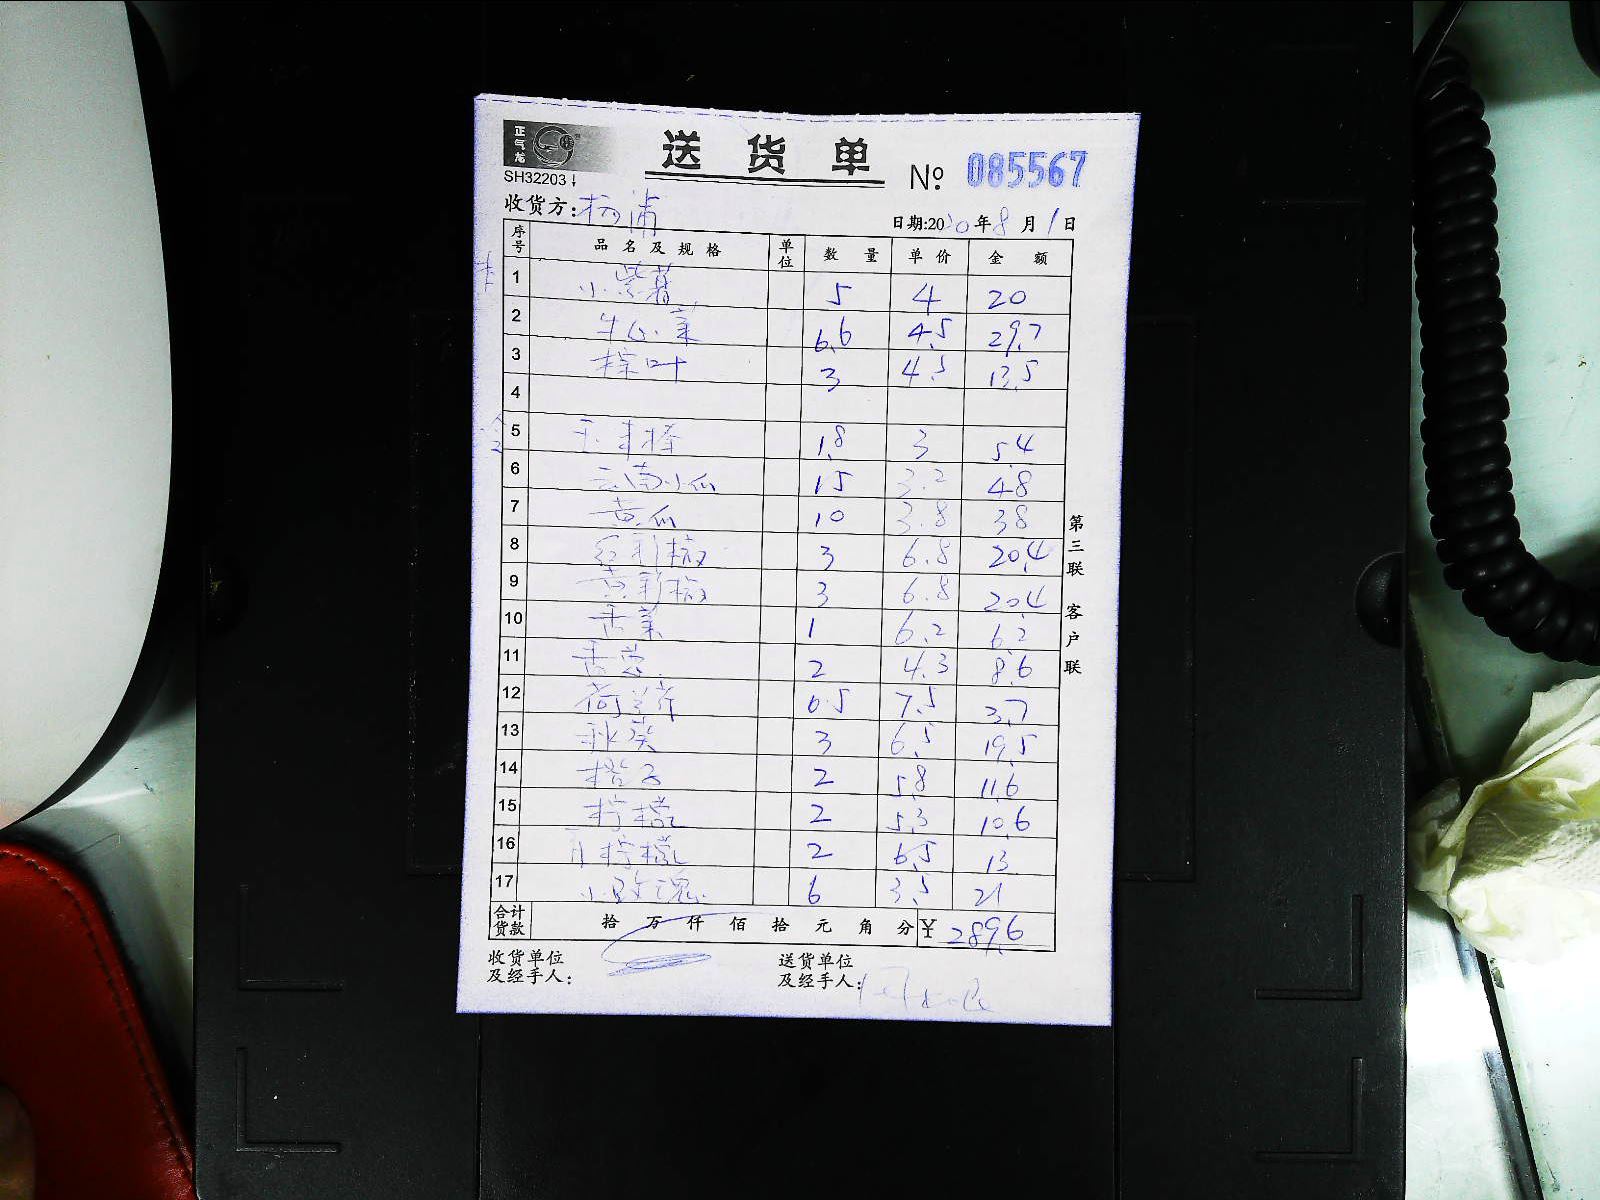 正气龙
送货单 № 085567
SH32203
收货方: 杨浦 日期:2020年8月1日
序号 品名及规格 单位 数量 单价 金额
1 小紫薯 5 4 20
2 牛心菜 6.6 4.5 29.7
3 粽叶 3 4.5 13.5
4
5 玉米棒 1.8 3 5.4
6 云南小瓜 15 3.2 48
7 黄瓜 10 3.8 38
8 红彩椒 3 6.8 20.4
9 黄彩椒 3 6.8 20.4
10 香菜 1 6.2 6.2
11 香葱 2 4.3 8.6
12 荷兰芹 0.5 7.5 3.7
13 秋葵 3 6.5 19.5
14 橙子 2 5.8 11.6
15 柠檬 2 5.3 10.6
16 青柠檬 2 6.5 13
17 小玫瑰 6 3.5 21
合计货款 拾 万 仟 佰 拾 元 角 分 ¥ 289.6
收货单位及经手人:
送货单位及经手人:
第三联 客户联